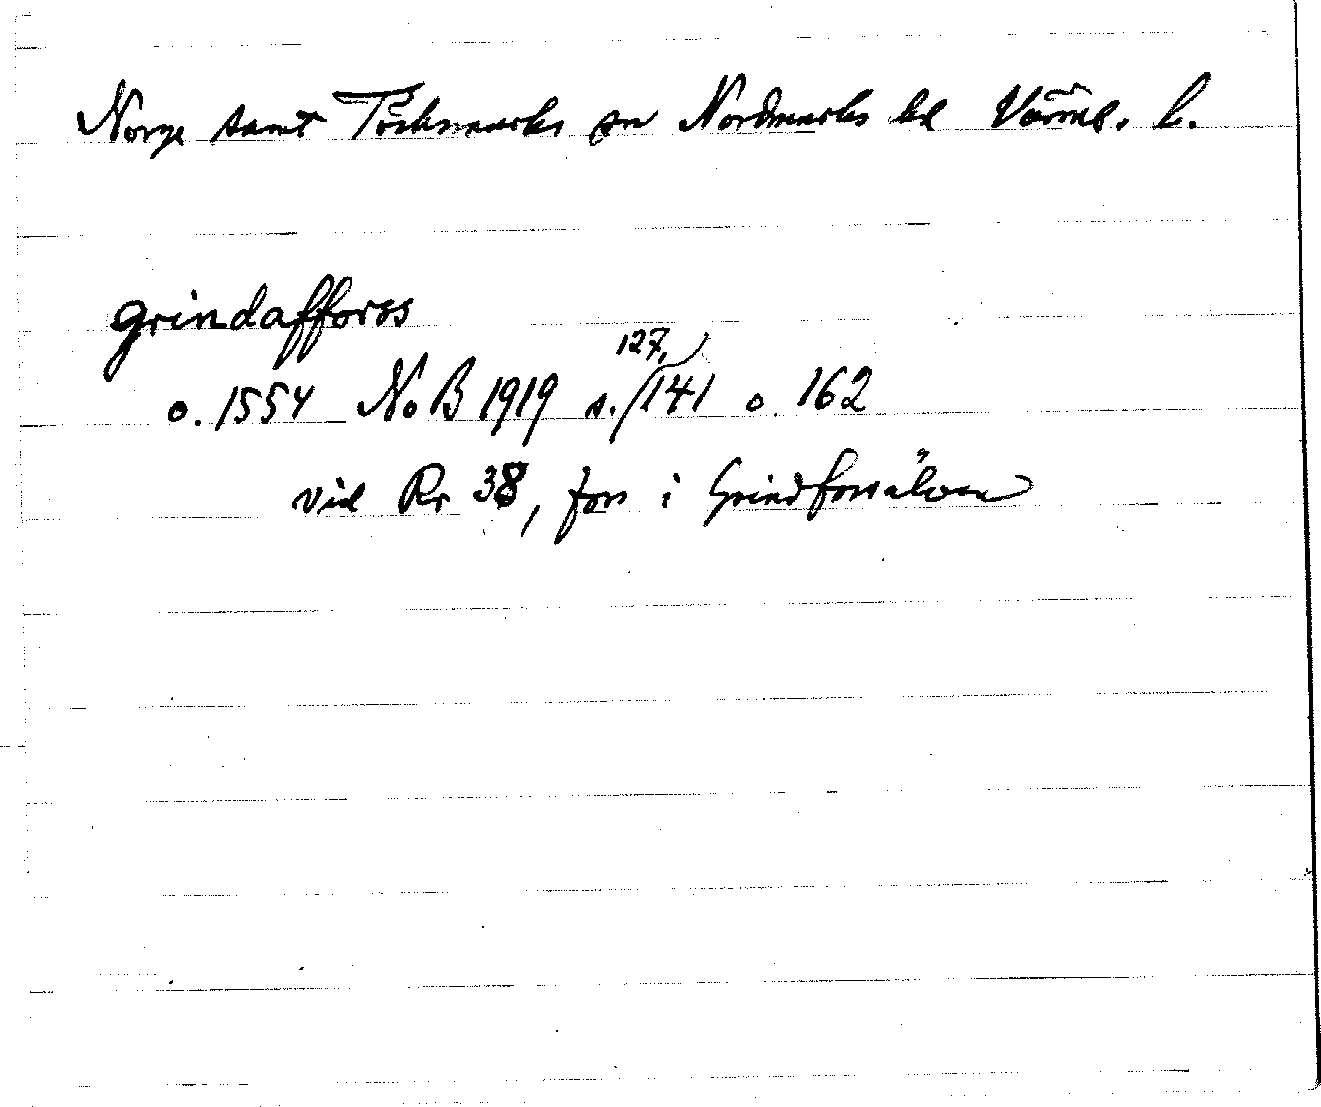 Norge samt Töcksmarks sn Nordmarks hd Värml. l.
grindafforss
o. 1554 NoB 1919 s. 127, 141 o. 162
vid Rr 38, fors i Grindforsälven